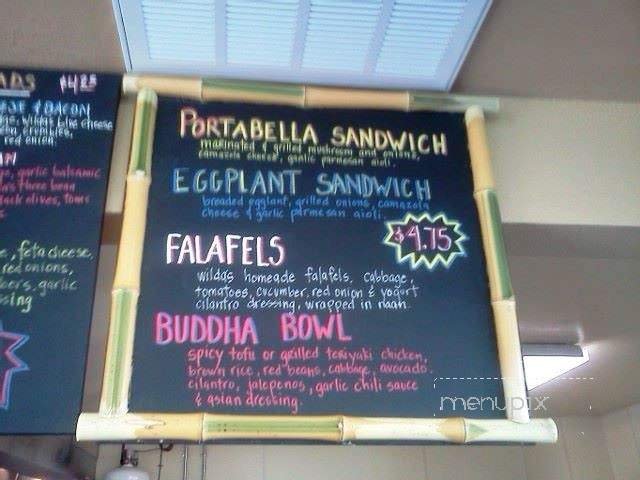 ADS $4.25
& BACON
blue cheese
red onion.
garlic balsamic
three bean
black olives,
feta cheese,
red onions,
garlic
PORTABELLA SANDWICH
marinated & grilled mushroom and onions,
camazola cheese, garlic parmesan aioli.
EGGPLANT SANDWICH
breaded eggplant, grilled onions, camazola
cheese & garlic parmesan aioli.
$4.75
FALAFELS
wilda's homeade falafels, cabbage,
tomatoes, cucumber, red onion & yogurt
cilantro dressing, wrapped in naan.
BUDDHA BOWL
spicy tofu or grilled teriyaki chicken,
brown rice, red beans, cabbage, avocado.
cilantro, jalepenos, garlic chili sauce
& asian dressing.
menupix